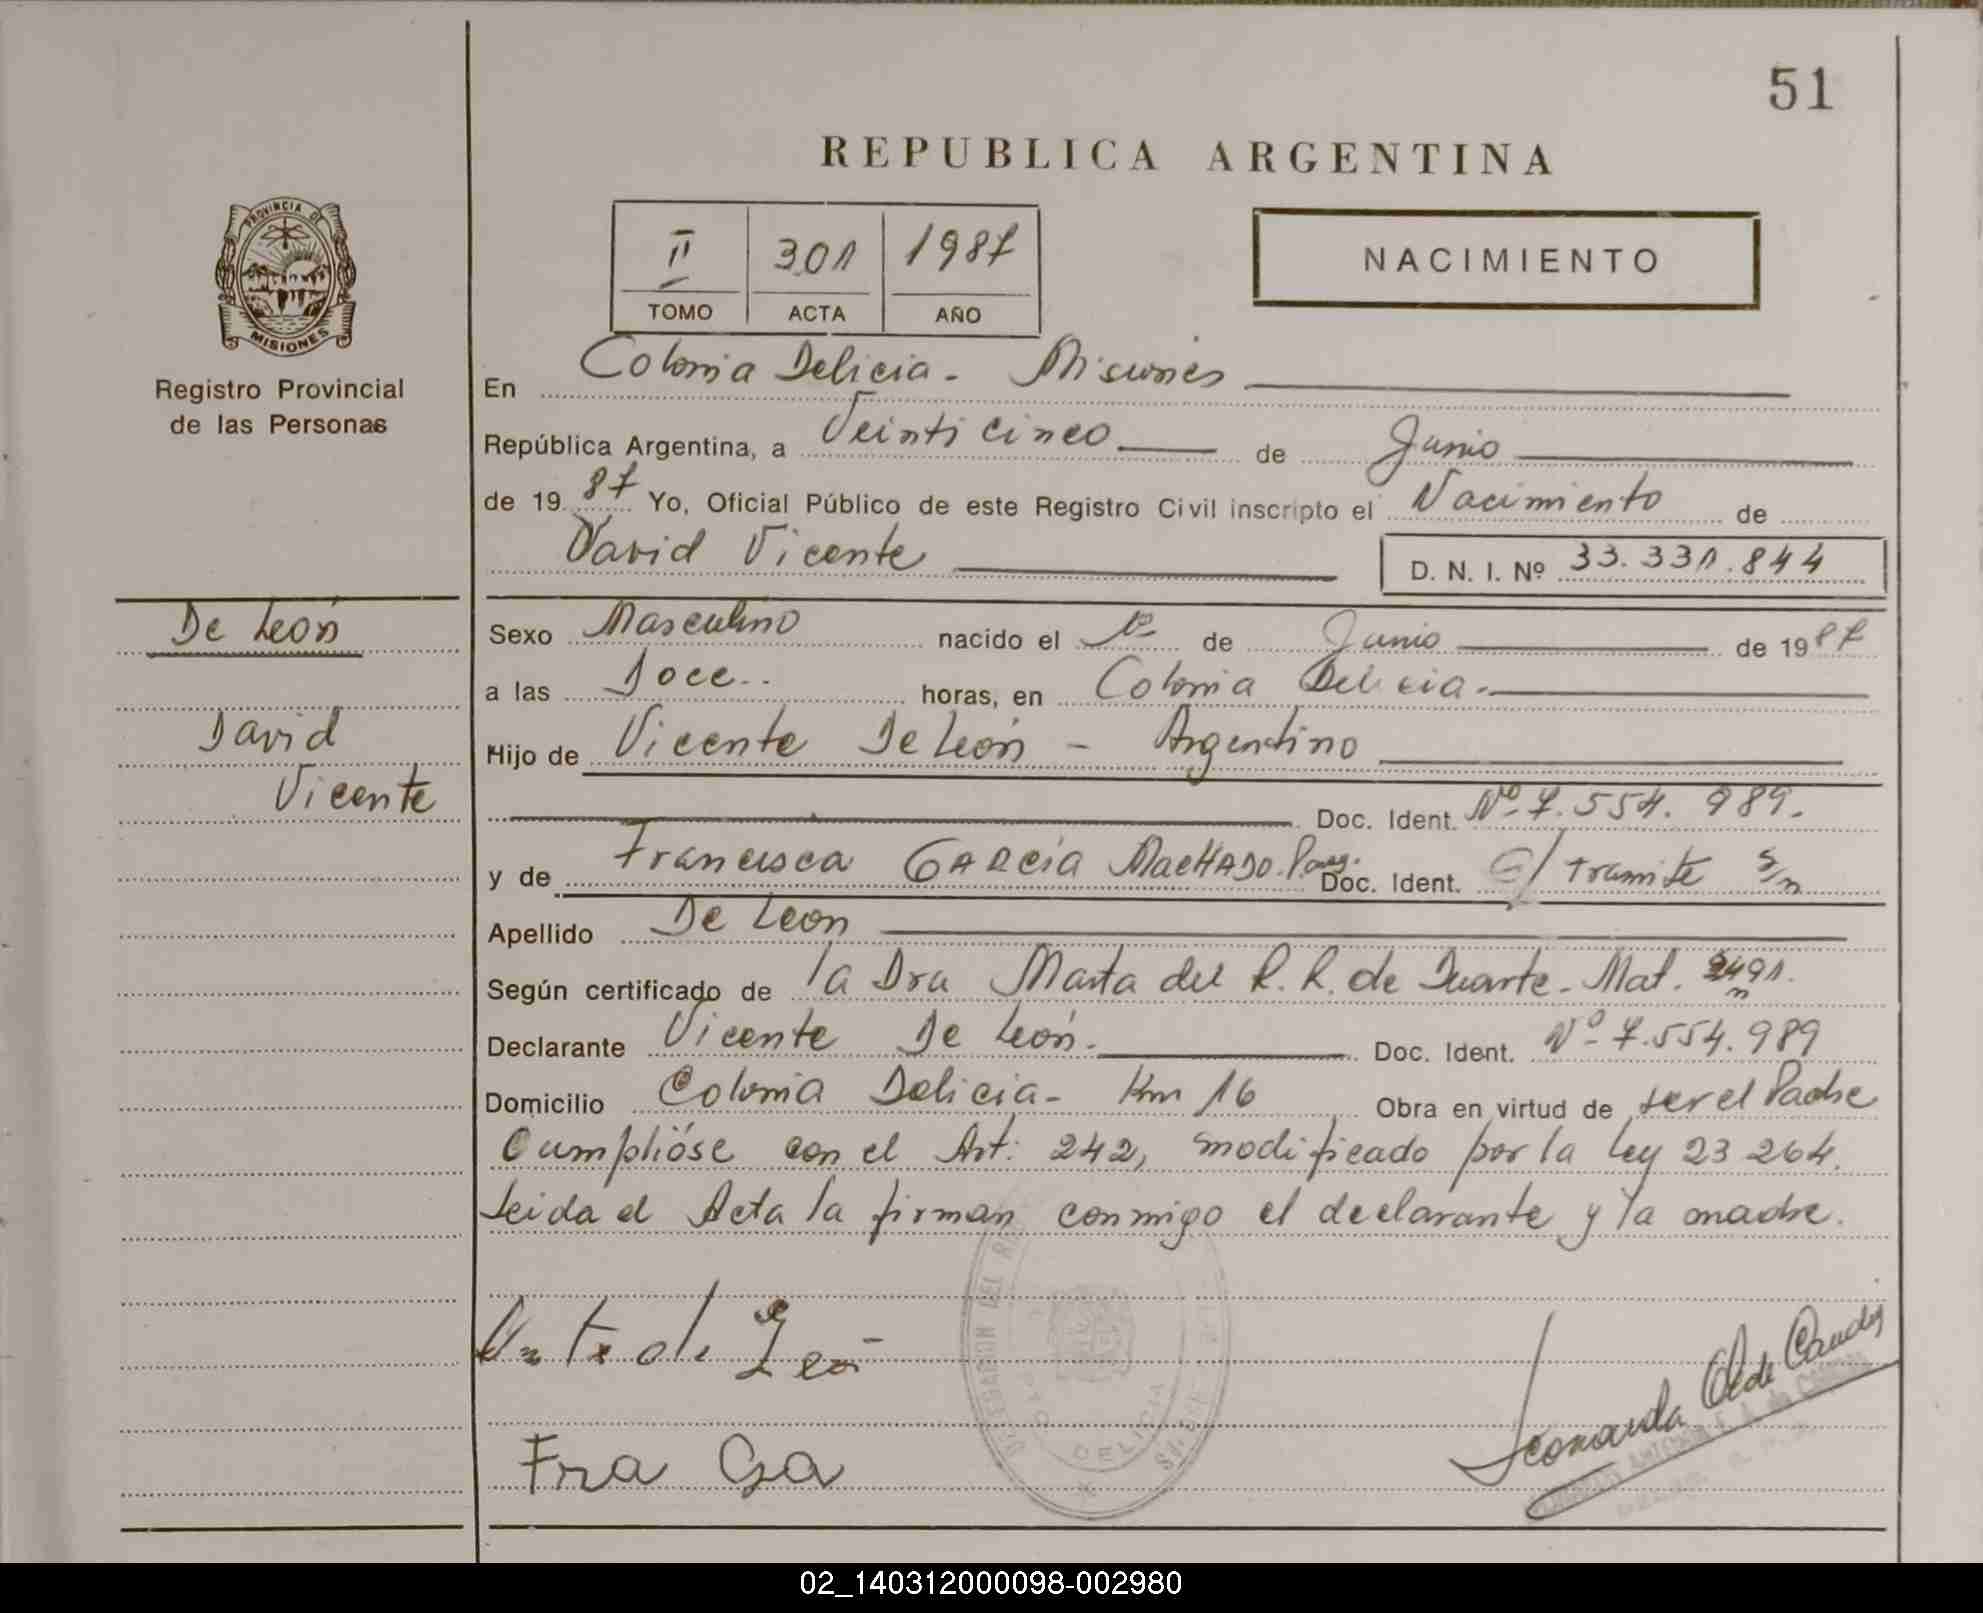 51
REPUBLICA ARGENTINA
PROVINCIA DE
MISIONES
Registro Provincial
de las Personas
II 301 1987
TOMO ACTA AÑO
NACIMIENTO
En Colonia Delicia - Misiones
República Argentina, a Veinticinco de Junio
de 19 87 Yo, Oficial Público de este Registro Civil inscripto el Nacimiento de
David Vicente D. N. I. Nº 33.331.844
De León
David
Vicente
Sexo Masculino nacido el 1º de Junio de 19 87
a las Doce.. horas, en Colonia Delicia.
Hijo de Vicente De León - Argentino
Doc. Ident. Nº 7.554.989.
y de Francisca GARCÍA MACHADO. Parag. Doc. Ident. E/ tramite s/n
Apellido De Leon
Según certificado de la Dra Marta del R. R. de Duarte. Mat. 2491.
Declarante Vicente De León. Doc. Ident. Nº 7.554.989
Domicilio Colonia Delicia - Km 16 Obra en virtud de ser el Padre
Cumplióse con el Art. 242, modificado por la Ley 23 264.
Leida el Acta la firman conmigo el declarante y la madre.
de León
Fra Ga
DELICIA
02_140312000098-002980